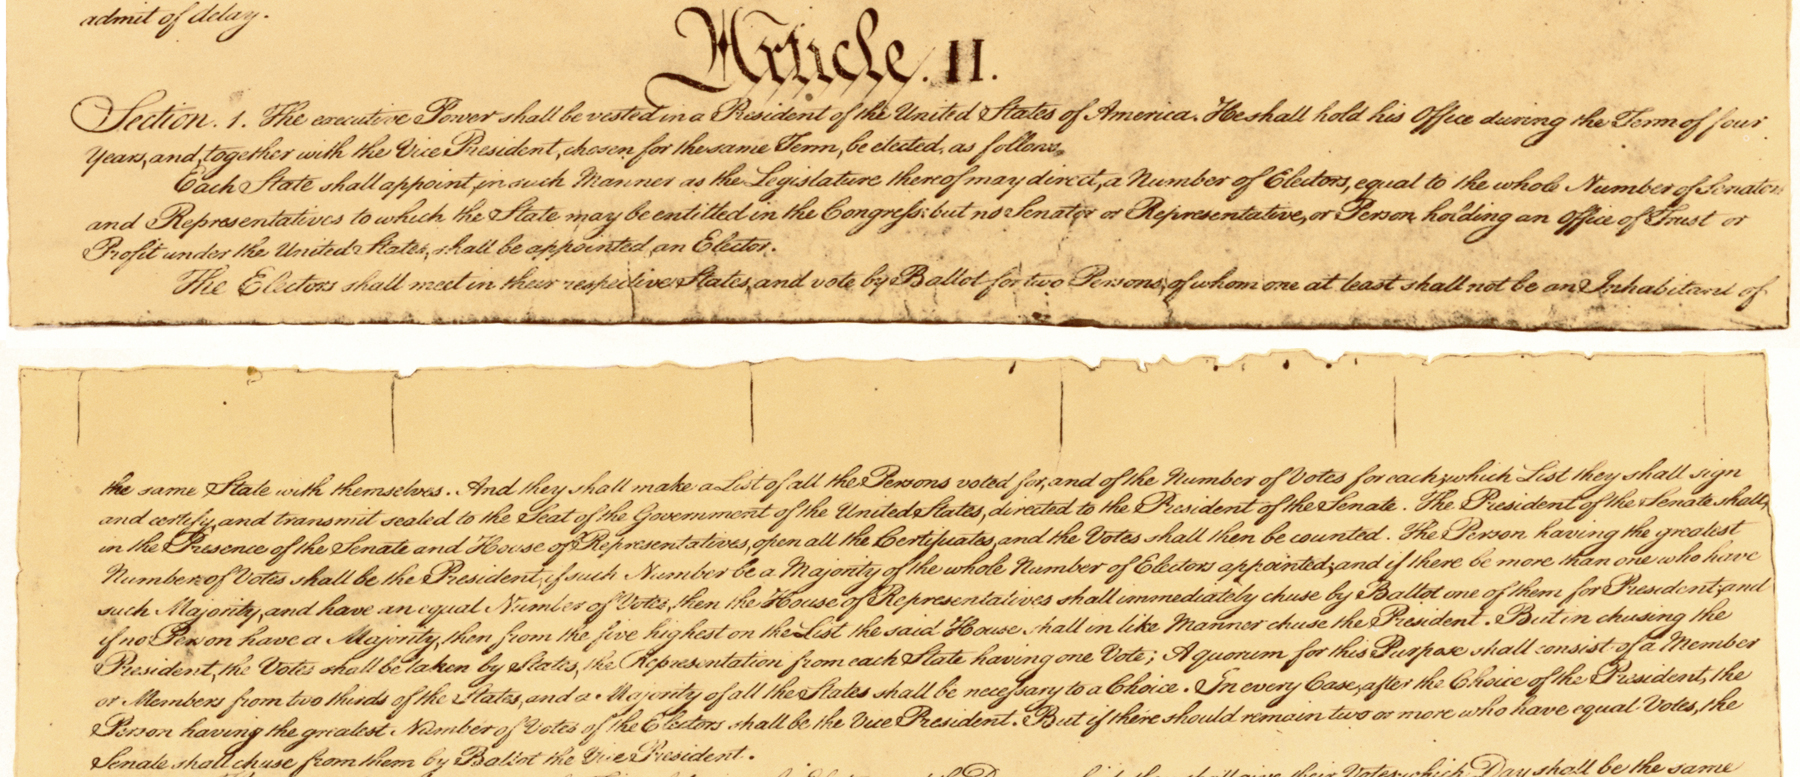 admit of delay.
Article. II.
Section. 1. The executive Power shall be vested in a President of the United States of America. He shall hold his Office during the Term of four
Years, and, together with the Vice President, chosen for the same Term, be elected, as follows.
Each State shall appoint, in such Manner as the Legislature thereof may direct, a Number of Electors, equal to the whole Number of Senators
and Representatives to which the State may be entitled in the Congress: but no Senator or Representative, or Person holding an Office of Trust or
Profit under the United States, shall be appointed an Elector.
The Electors shall meet in their respective States, and vote by Ballot for two Persons, of whom one at least shall not be an Inhabitant of
the same State with themselves. And they shall make a List of all the Persons voted for, and of the Number of Votes for each; which List they shall sign
and certify, and transmit sealed to the Seat of the Government of the United States, directed to the President of the Senate. The President of the Senate shall,
in the Presence of the Senate and House of Representatives, open all the Certificates, and the Votes shall then be counted. The Person having the greatest
Number of Votes shall be the President, if such Number be a Majority of the whole Number of Electors appointed; and if there be more than one who have
such Majority, and have an equal Number of Votes, then the House of Representatives shall immediately chuse by Ballot one of them for President; and
if no Person have a Majority, then from the five highest on the List the said House shall in like Manner chuse the President. But in chusing the
President, the Votes shall be taken by States, the Representation from each State having one Vote; A quorum for this Purpose shall consist of a Member
or Members from two thirds of the States, and a Majority of all the States shall be necessary to a Choice. In every Case, after the Choice of the President, the
Person having the greatest Number of Votes of the Electors shall be the Vice President. But if there should remain two or more who have equal Votes, the
Senate shall chuse from them by Ballot the Vice President.
shall give their Votes; which Day shall be the same